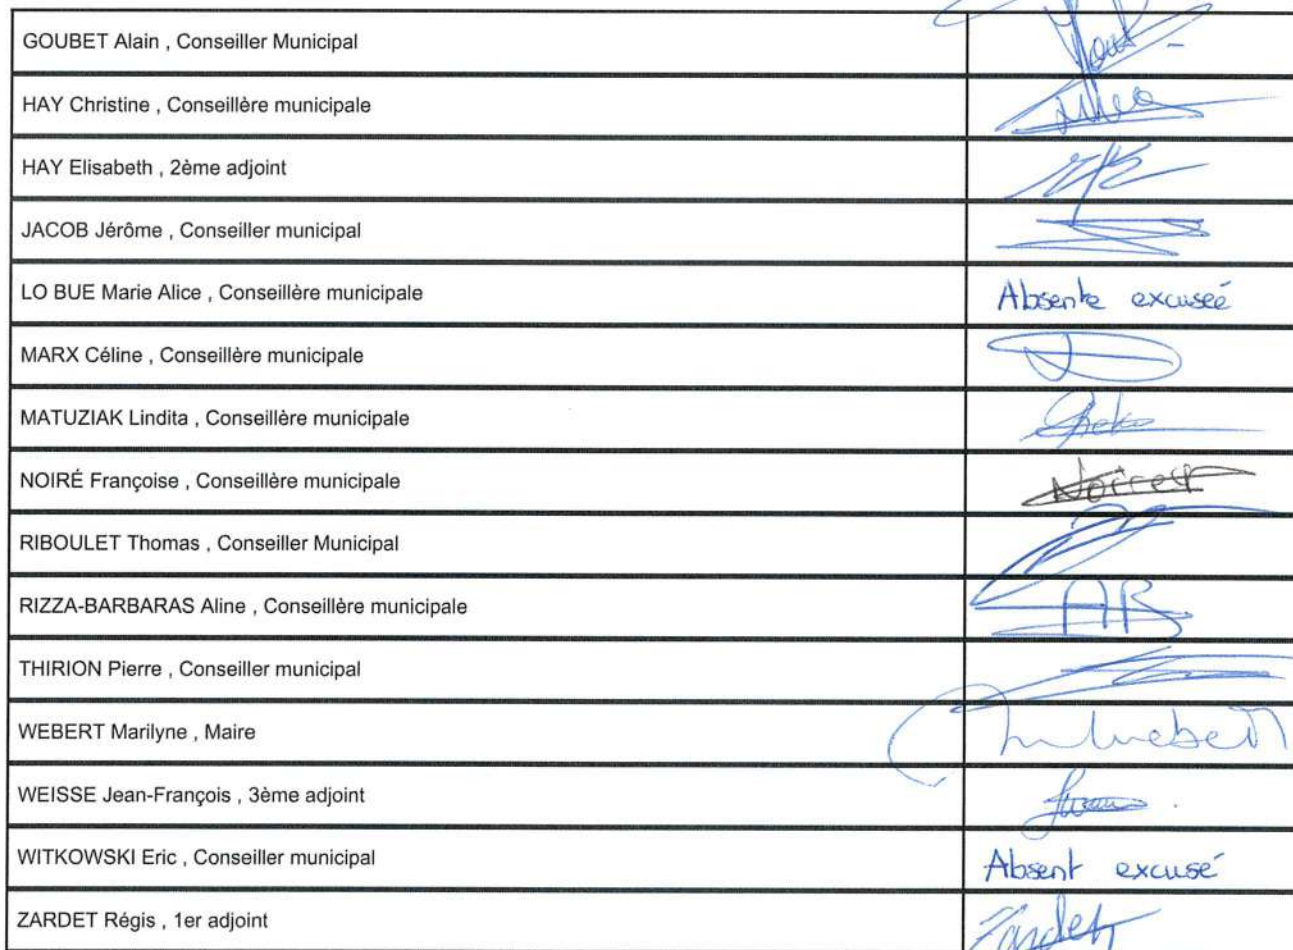 GOUBET Alain , Conseiller Municipal
HAY Christine , Conseillère municipale
HAY Elisabeth , 2ème adjoint
JACOB Jérôme , Conseiller municipal
LO BUE Marie Alice , Conseillère municipale Absente excusée
MARX Céline , Conseillère municipale
MATUZIAK Lindita , Conseillère municipale
NOIRÉ Françoise , Conseillère municipale
RIBOULET Thomas , Conseiller Municipal
RIZZA-BARBARAS Aline , Conseillère municipale AB
THIRION Pierre , Conseiller municipal
WEBERT Marilyne , Maire
WEISSE Jean-François , 3ème adjoint
WITKOWSKI Eric , Conseiller municipal Absent excusé
ZARDET Régis , 1er adjoint Zardet